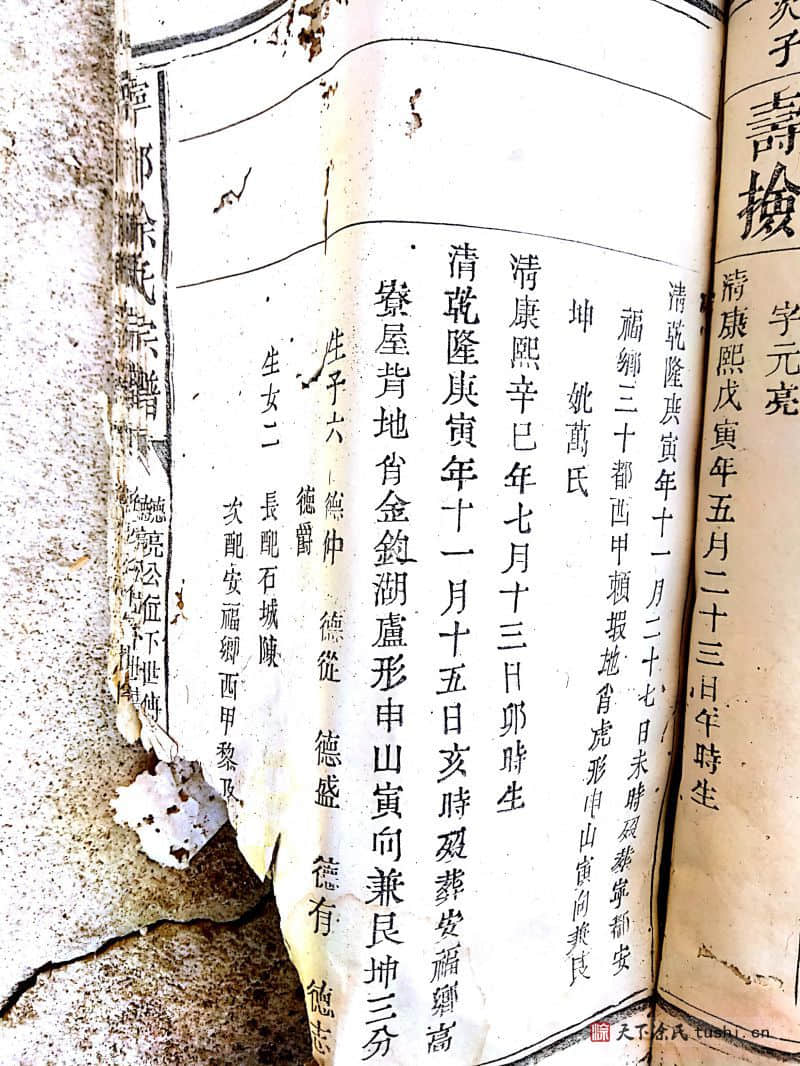 次子
壽撿
字元亮
清康熙戊寅年五月二十三日午時生
清乾隆庚寅年十一月二十七日未時殁葬寧都安
福鄉三十都西甲賴塅地肖虎形申山寅向兼艮
坤 妣萬氏
清康熙辛巳年七月十三日卯時生
清乾隆庚寅年十一月十五日亥時殁葬安福鄉高
寮屋背地肖金鈎湖盧形申山寅向兼艮坤三分
生子六 德仲 德從 德盛 德有 德志
德爵
生女二 長配石城陳
次配安福鄉西甲黎及
寧都余氏宗譜
德亮公位下世傳
天下余氏 tushi.cn